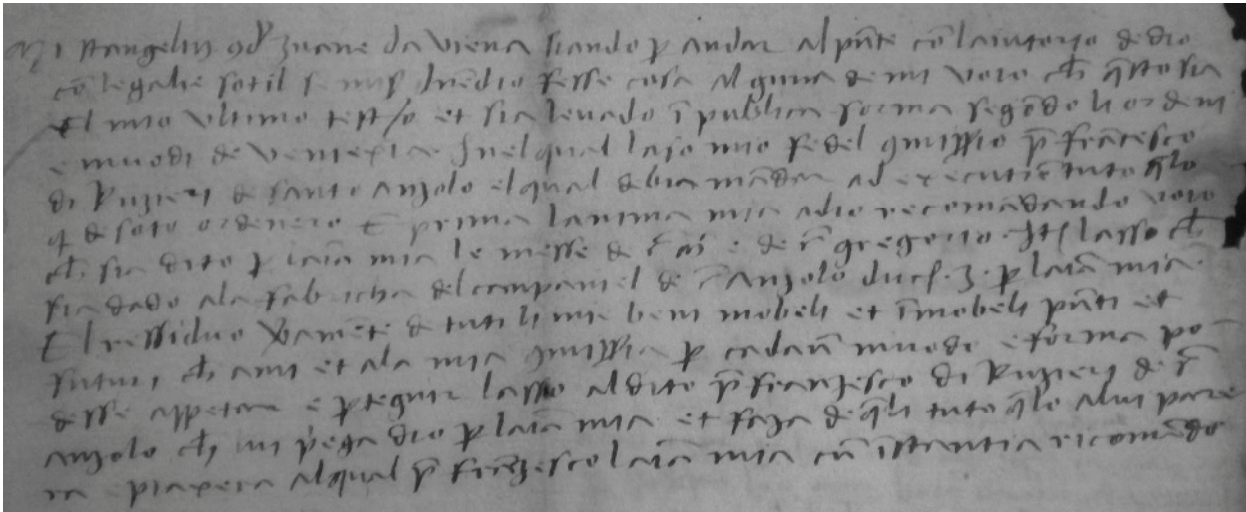 Mi stangelin qd zuane da viena siando p andar al pnte cō laiutorio de dio
cō le galie sotil se mis dnedio fesse cosa alguna de mi voio ch qsto sia
El mio ultimo testo et sia levado ī publica forma segōdo li ordeni
e muodi de veniexia. Inel qual laso mio fedel qmissio p francesco
di Ruzieri de santo anzolo el qual debia mādar ad executiē tuto qlo
q de soto ordenero E prima lanima mia a dio recomādando voio
ch sia dito p laīa mia le messe de s. mā e de s. gregorio. Itē lasso ch
sia dado a la fabricha del campaniel de s. Anzolo duc. 3. p laīa mia.
El ressiduo vamēte de tuti li mie beni mobeli et īmobeli pnti et
futuri, ch ami et a la mia qmissia p cadaū muodo e forma po
desse aspetar e ptegnir lasso al dito p franzesco di Ruzieri de s.
anzolo ch lui pega dio p laīa mia et faza de qli tuto qlo a lui pare
ra e piaxera al qual p franzesco laīa mia cū īstantia ricomādo